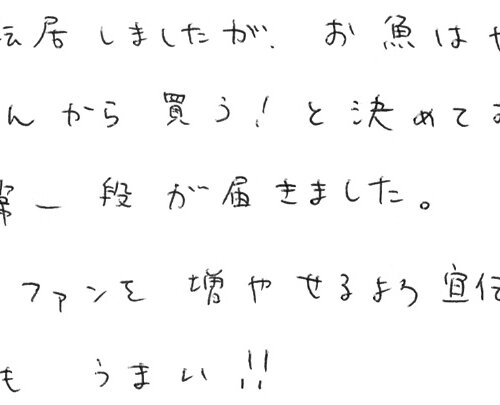 転居しましたが、お魚は
んから買う!と決めて
第一段が届きました。
ファンを増やせるよう宣伝
も うまい!!